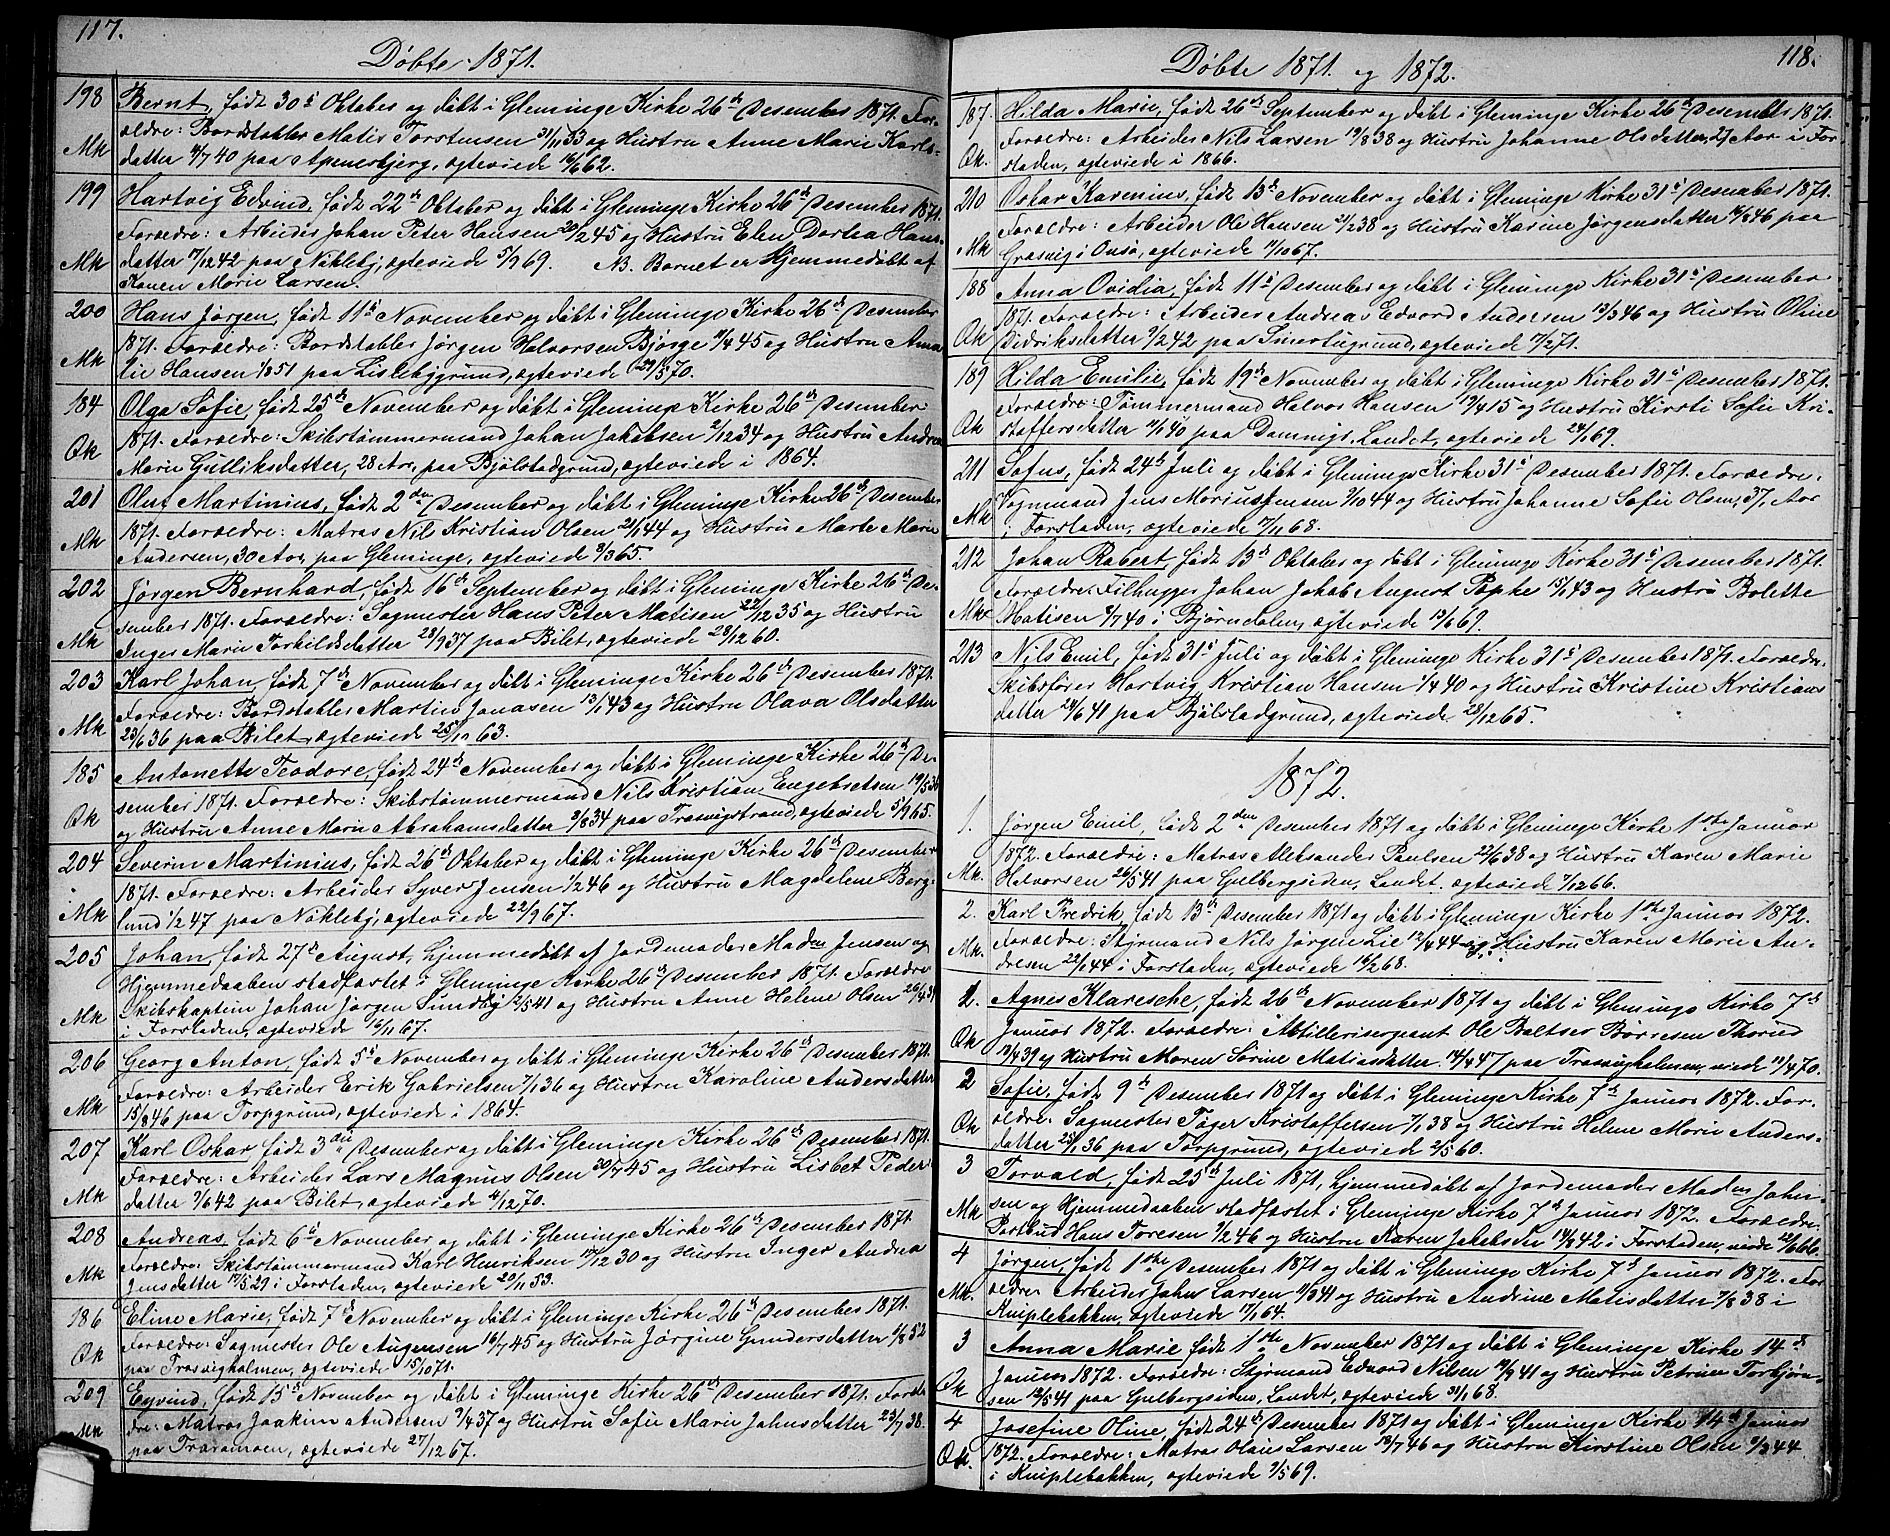 117.
Døbte 1871.
198 Bernt, født 30te Oktober og døbt i Gleminge Kirke 26de Desember 1871. For-
ældre: Bordstabler Matis Torstensen 31/1133 og Hustru Anne Marie Karls-
Mk datter 4/740 paa Apenesbjerg, egteviede 16/662.
199 Hartvig Edvind, født 22de Oktober og døbt i Gleminge Kirke 26de Desember 1871.
Forældre: Arbeider Johan Peter Hansen 20/245 og Hustru Elen Dortea Hans-
Mk datter 17/1242 paa Nøkleby, egteviede 5/969. NB. Barnet er Hjemmedøbt af
Karen Marie Larsen.
200 Hans Jørgen, født 11te November og døbt i Gleminge Kirke 26de Desember
1871. Forældre: Bordstabler Jørgen Halvorsen Bjørge 11/445 og Hustru Ama-
Mk lie Hansen 1/851 paa Lislebygrund, egteviede 29/570.
184 Olga Sofie, født 25de November og døbt i Gleminge Kirke 26de Desember
1871. Forældre: Skibstømmermand Johan Jakobsen 2/1234 og Hustru Andrea
Qk Marie Gulliksdatter, 28 Aar, paa Bjølstadgrund, egteviede i 1864.
201 Oluf Martinius, født 2den Desember og døbt i Gleminge Kirke 26de Desember
1871. Forældre: Matros Nil Kristian Olsen 21/144 og Hustru Marte Marie
Mk Andersen, 30 Aar, paa Gleminge, egteviede 3/365.
202 Jørgen Bernhard, født 16de September og døbt i Gleminge Kirke 26de De-
sember 1871. Forældre: Sagmester Hans Peter Matisen 22/1235 og Hustru
Mk Inger Marie Torkildsdatter 28/937 paa Bilet, egteviede 28/1260.
203 Karl Johan, født 7de November og døbt i Gleminge Kirke 26de Desember 1871.
Forældre: Bordstabler Martin Jonasen 13/143 og Hustru Olava Olsdatter
Mk 23/636 paa Bilet, egteviede 25/1263.
185 Antonette Teodore, født 24de November og døbt i Gleminge Kirke 26de De-
sember 1871. Forældre: Skibstømmermand Nils Kristian Engebretsen 19/536
Qk og Hustru Anne Marie Abrahamsdatter 3/834 paa Trosvigstrand, egteviede 5/965.
204 Severin Martinius, født 26de Oktober og døbt i Gleminge Kirke 26de Desember
1871. Forældre: Arbeider Syver Jensen 1/246 og Hustru Magdalene Berg-
Mk lund 1/247 paa Nøkleby, egteviede 22/967.
205 Johan, født 27de August, hjemmedøbt af Jordmoder Maden Jensen og
Hjemmedaaben stadfæstet i Gleminge Kirke 26de Desember 1871. Forældre
Skibskaptein Johan Jørgen Sundby 12/541 og Hustru Anne Helene Olsen 26/431
Mk i Forstaden, egteviede 16/1167.
206 Georg Anton, født 5te November og døbt i Gleminge Kirke 26de Desember 1871.
Forældre: Arbeider Erik Gabrielsen 7/136 og Hustru Karoline Andersdatter
Mk 15/846 paa Torpgrund, egteviede i 1864.
207 Karl Oskar, født 3die Desember og døbt i Gleminge Kirke 26de Desember 1871.
Forældre: Arbeider Lars Magnus Olsen 30/745 og Hustru Lisbet Peder-
Mk datter 9/642 paa Bilet, egteviede 4/1270.
208 Andreas, født 6te November og døbt i Gleminge Kirke 26de Desember 1871.
Forældre: Skibstømmermand Karl Henriksen 17/1230 og Hustru Inger Andrea
Mk Jensdatter 17/529 i Forstaden, egteviede 20/153.
186 Eline Marie, født 7de November og døbt i Gleminge Kirke 26de Desember 1871.
Forældre: Sagmester Ole Augensen 16/745 og Hustru Jørgine Gundersdatter 5/852
Qk paa Trosvigholmen, egteviede 15/1071.
209 Eyvind, født 15de November og døbt i Gleminge Kirke 26de Desember 1871. Foræl-
dre: Matros Joakim Andersen 9/437 og Hustru Sofie Marie Johnsdatter 23/738
Mk paa Traramoen, egteviede 27/1267.
118.
Døbte 1871. og 1872.
187. Hilda Marie, født 26de September og døbt i Gleminge Kirke 26de Desember 1871.
Forældre: Arbeider Nils Larsen 19/838 og Hustru Johanne Olsdatter, 27 Aar i For-
Qk. staden, egteviede i 1866.
210 Oskar Karenius, født 13de November og døbt i Gleminge Kirke 31te Desember 1871.
Forældre: Arbeider Ole Hansen 21/238 og Hustru Karine Jørgensdatter 16/346 paa
Mk Græsvig i Onsø, egteviede 11/1067.
188 Anna Ovidia, født 11te Desember og døbt i Gleminge Kirke 31te Desember
1871. Forældre: Arbeider Andreas Edvard Andersen 13/346 og Hustru Oline
Qk Didriksdatter 9/242 paa Smertugrund, egteviede 17/271.
189 Hilda Emilie, født 19de November og døbt i Gleminge Kirke 31te Desember 1871.
Forældre: Tømmermand Halvor Hansen 17/415 og Hustru Kirsti Sofie Kri-
Qk stoffersdatter 11/140 paa Damvigs. Landet, egteviede 24/169.
211 Sofus, født 24de Juli og døbt i Gleminge Kirke 31te Desember 1871. Forældre:
Vognmand Jens Marius Jensen 3/1044 og Hustru Johanne Sofie Olsen, 37, Aar
Mk i Forstaden, egteviede 17/168.
212 Johan Robert, født 13de Oktober og døbt i Gleminge Kirke 31te Desember 1871.
Forældre: Filhugger Johan Jakob August Pøpke 15/143 og Hustru Bolette
Mk Matisen 4/740 i Bjørndalen, egteviede 13/669.
213 Nils Emil, født 31te Juli og døbt i Gleminge Kirke 31te Desember 1871. Forældre:
Skibsfører Hartvig Kristian Hansen 1/440 og Hustru Kristine Kristians
datter 24/641 paa Bjølstadgrund, egteviede 28/1265.
1872.
1. Jørgen Emil, født 2den Desember 1871 og døbt i Gleminge Kirke 1ste Januar
1872. Forældre: Matros Aleksander Paulsen 22/638 og Hustru Karen Marie
Mk. Halvorsen 26/541 paa Gulbergsiden, Landet. egteviede 7/1266.
2. Karl Fredrik, født 13de Desember 1871 og døbt i Gleminge Kirke 1ste Januar 1872.
Mk. Forældre: Styrmand Nils Jørgen Lie 12/444 og Hustru Karen Marie An-
dresen 22/144 i Forstaden, egteviede 16/268.
1. Agnes Klaresche, født 26de November 1871 og døbt i Gleminge Kirke 7de
Qk Januar 1872. Forældre: Artillerisergeant Ole Baltser Børresen Thorud
13/439 og Hustru Maren Sørine Matiasdatter 14/447 paa Trosvigholmen, viede 17/470.
2 Sofie, født 9de Desember 1871 og døbt i Gleminge Kirke 7de Januar 1872. For-
Qk ældre: Sagmester Tøger Kristoffersen 7/138 og Hustru Helene Marie Anders-
datter 25/136 paa Torpgrund, egteviede 2/560.
3 Torvald, født 25de Juli 1871, hjemmedøbt af Jordemoder Maden John-
Mk sen og Hjemmedaaben stadfæstet i Gleminge Kirke 7de Januar 1872. Forældre:
Postbud Hans Toresen 1/246 og Hustru Karen Jakobsdr 14/942 i Forstaden, viede 22/666.
4 Jørgen, født 1ste Desember 1871 og døbt i Gleminge Kirke 7de Januar 1872. For-
Mk. ældre: Arbeider John Larsen 11/341 og Hustru Andrine Matisdatter 7/838 i
Kniplebakken, egteviede 17/164.
3 Anna Marie født 1ste November 1871 og døbt i Gleminge Kirke 14de
Qk Januar 1872. Forældre: Styrmand Edvard Nilsen 12/941 og Hustru Petrine Torbjørn-
sen 12/541 paa Gulbergsiden, Landet, egteviede 31/168.
4 Josefine Oline, født 24de Desember 1871 og døbt i Gleminge Kirke 14de Januar
Qk. 1872. Forældre: Matros Olaus Larsen 18/746 og Hustru Kirstine Olsen 5/344
i Kniplebakken, egteviede 2/569.